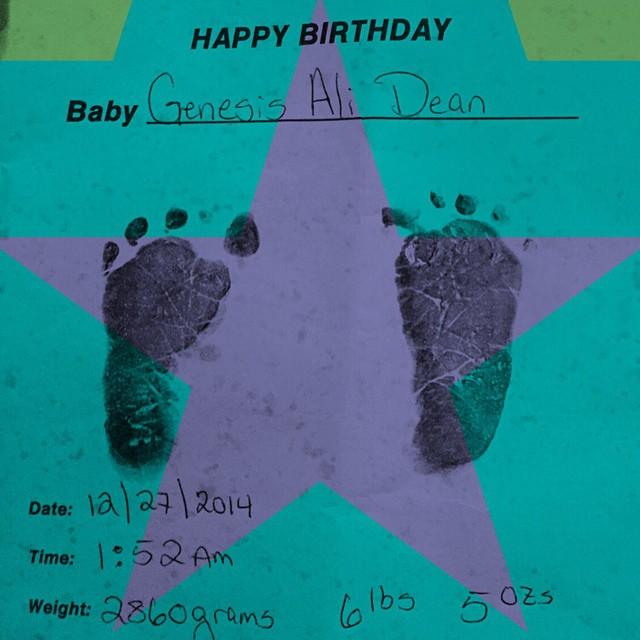 HAPPY BIRTHDAY
Baby Genesis Ali Dean
Date: 12/27/2014
Time: 1:52 Am
Weight: 2860grams 6lbs 5ozs